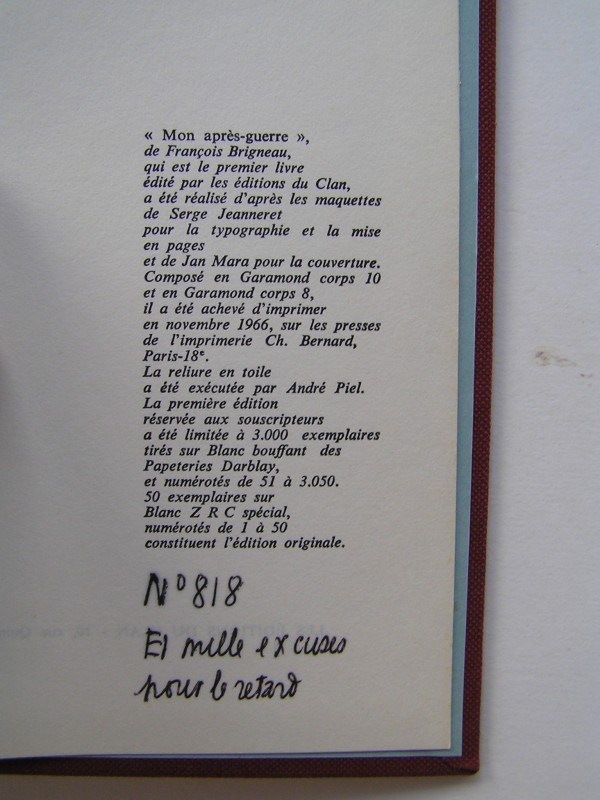 « Mon après-guerre »,
de François Brigneau,
qui est le premier livre
édité par les éditions du Clan,
a été réalisé d'après les maquettes
de Serge Jeanneret
pour la typographie et la mise
en pages
et de Jan Mara pour la couverture.
Composé en Garamond corps 10
et en Garamond corps 8,
il a été achevé d'imprimer
en novembre 1966, sur les presses
de l'imprimerie Ch. Bernard,
Paris-18e.
La reliure en toile
a été exécutée par André Piel.
La première édition
réservée aux souscripteurs
a été limitée à 3.000 exemplaires
tirés sur Blanc bouffant des
Papeteries Darblay,
et numérotés de 51 à 3.050.
50 exemplaires sur
Blanc Z R C spécial,
numérotés de 1 à 50
constituent l'édition originale.
N° 818
Et mille excuses
pour le retard